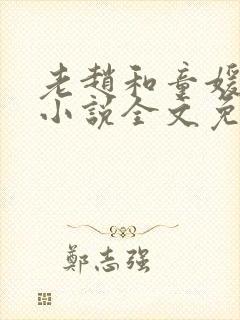 老趙和童媛
小說全文免
鄭志強